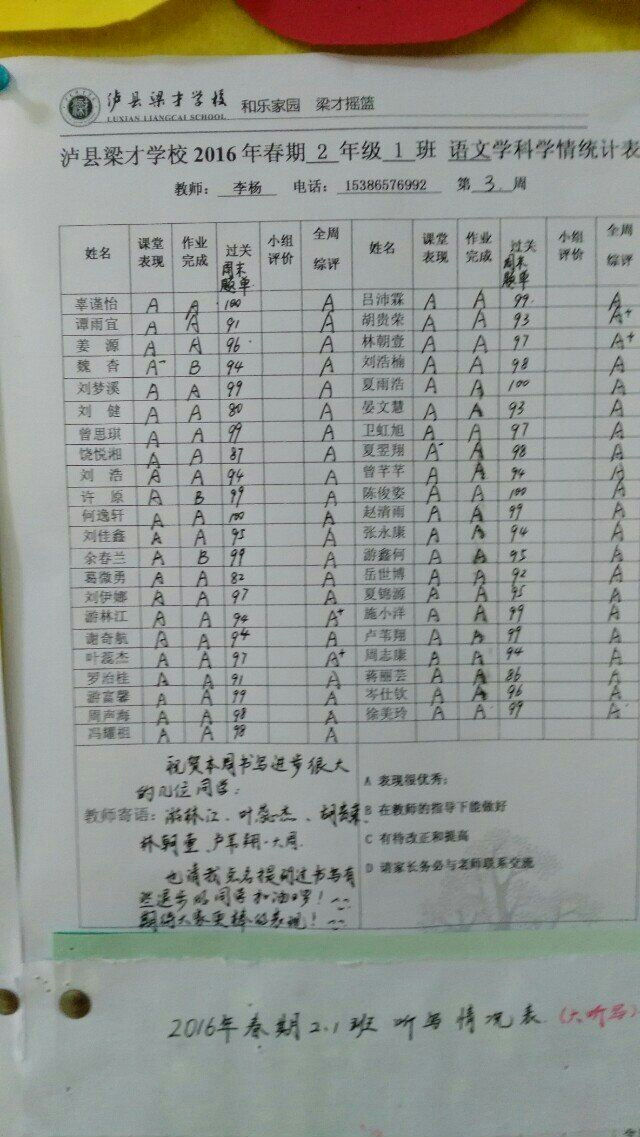 泸县梁才学校 和乐家园 梁才摇篮
LUXIAN LIANGCAI SCHOOL
泸县梁才学校2016年春期2年级1班 语文学科学情统计表
教师: 李杨 电话: 15386576992 第3.周
姓名 课堂表现 作业完成 过关周末题单 小组评价 全周综评 姓名 课堂表现 作业完成 过关周末题单 小组评价 全周综评
辜谨怡 A A 100 A 吕沛霖 A A 99 A
谭雨宜 A A 91 A 胡贵荣 A A 93 A+
姜源 A A 96 A 林朝壹 A A 97 A+
魏杳 A- B 94 A 刘浩楠 A A 98 A
刘梦溪 A A 99 A 夏雨浩 A A 100 A
刘健 A A 80 A 晏文慧 A A 93 A
曾思琪 A A 99 A 卫虹旭 A A 97 A
饶悦湘 A A 87 A 夏翌翔 A- A 98 A
刘浩 A A 94 A 曾芊芊 A A 94 A
许原 A B 99 A 陈俊姿 A A 100 A
何逸轩 A A 100 A 赵清雨 A A 99 A
刘佳鑫 A A 95 A 张永康 A A 94 A
余春兰 A B 99 A 游鑫何 A A 95 A
葛微勇 A A 82 A 岳世博 A A 92 A
刘伊娜 A A 97 A 夏锦源 A A 95 A
游林江 A A 94 A+ 施小洋 A A 99 A
谢奇航 A A 94 A 卢苇翔 A A 99 A
叶蕊杰 A A 97 A+ 周志康 A A 94 A
罗治桂 A A 91 A 蒋丽芸 A A 86 A
游富馨 A A 99 A 岑仕钦 A A 96 A
周声海 A A 98 A 徐美玲 A A 99 A
冯耀祖 A A 98 A
祝贺本周书写进步很大
的几位同学:
教师寄语: 游林江、叶蕊杰、胡贵荣
林朝壹 卢苇翔
也请我点名提到过书写有
些退步的同学加油哕!
期待大家更棒的表现!
A 表现很优秀;
B 在教师的指导下能做好
C 有待改正和提高
D 请家长务必与老师联系交流
2016年春期2.1班 听写情况表 (大听写)